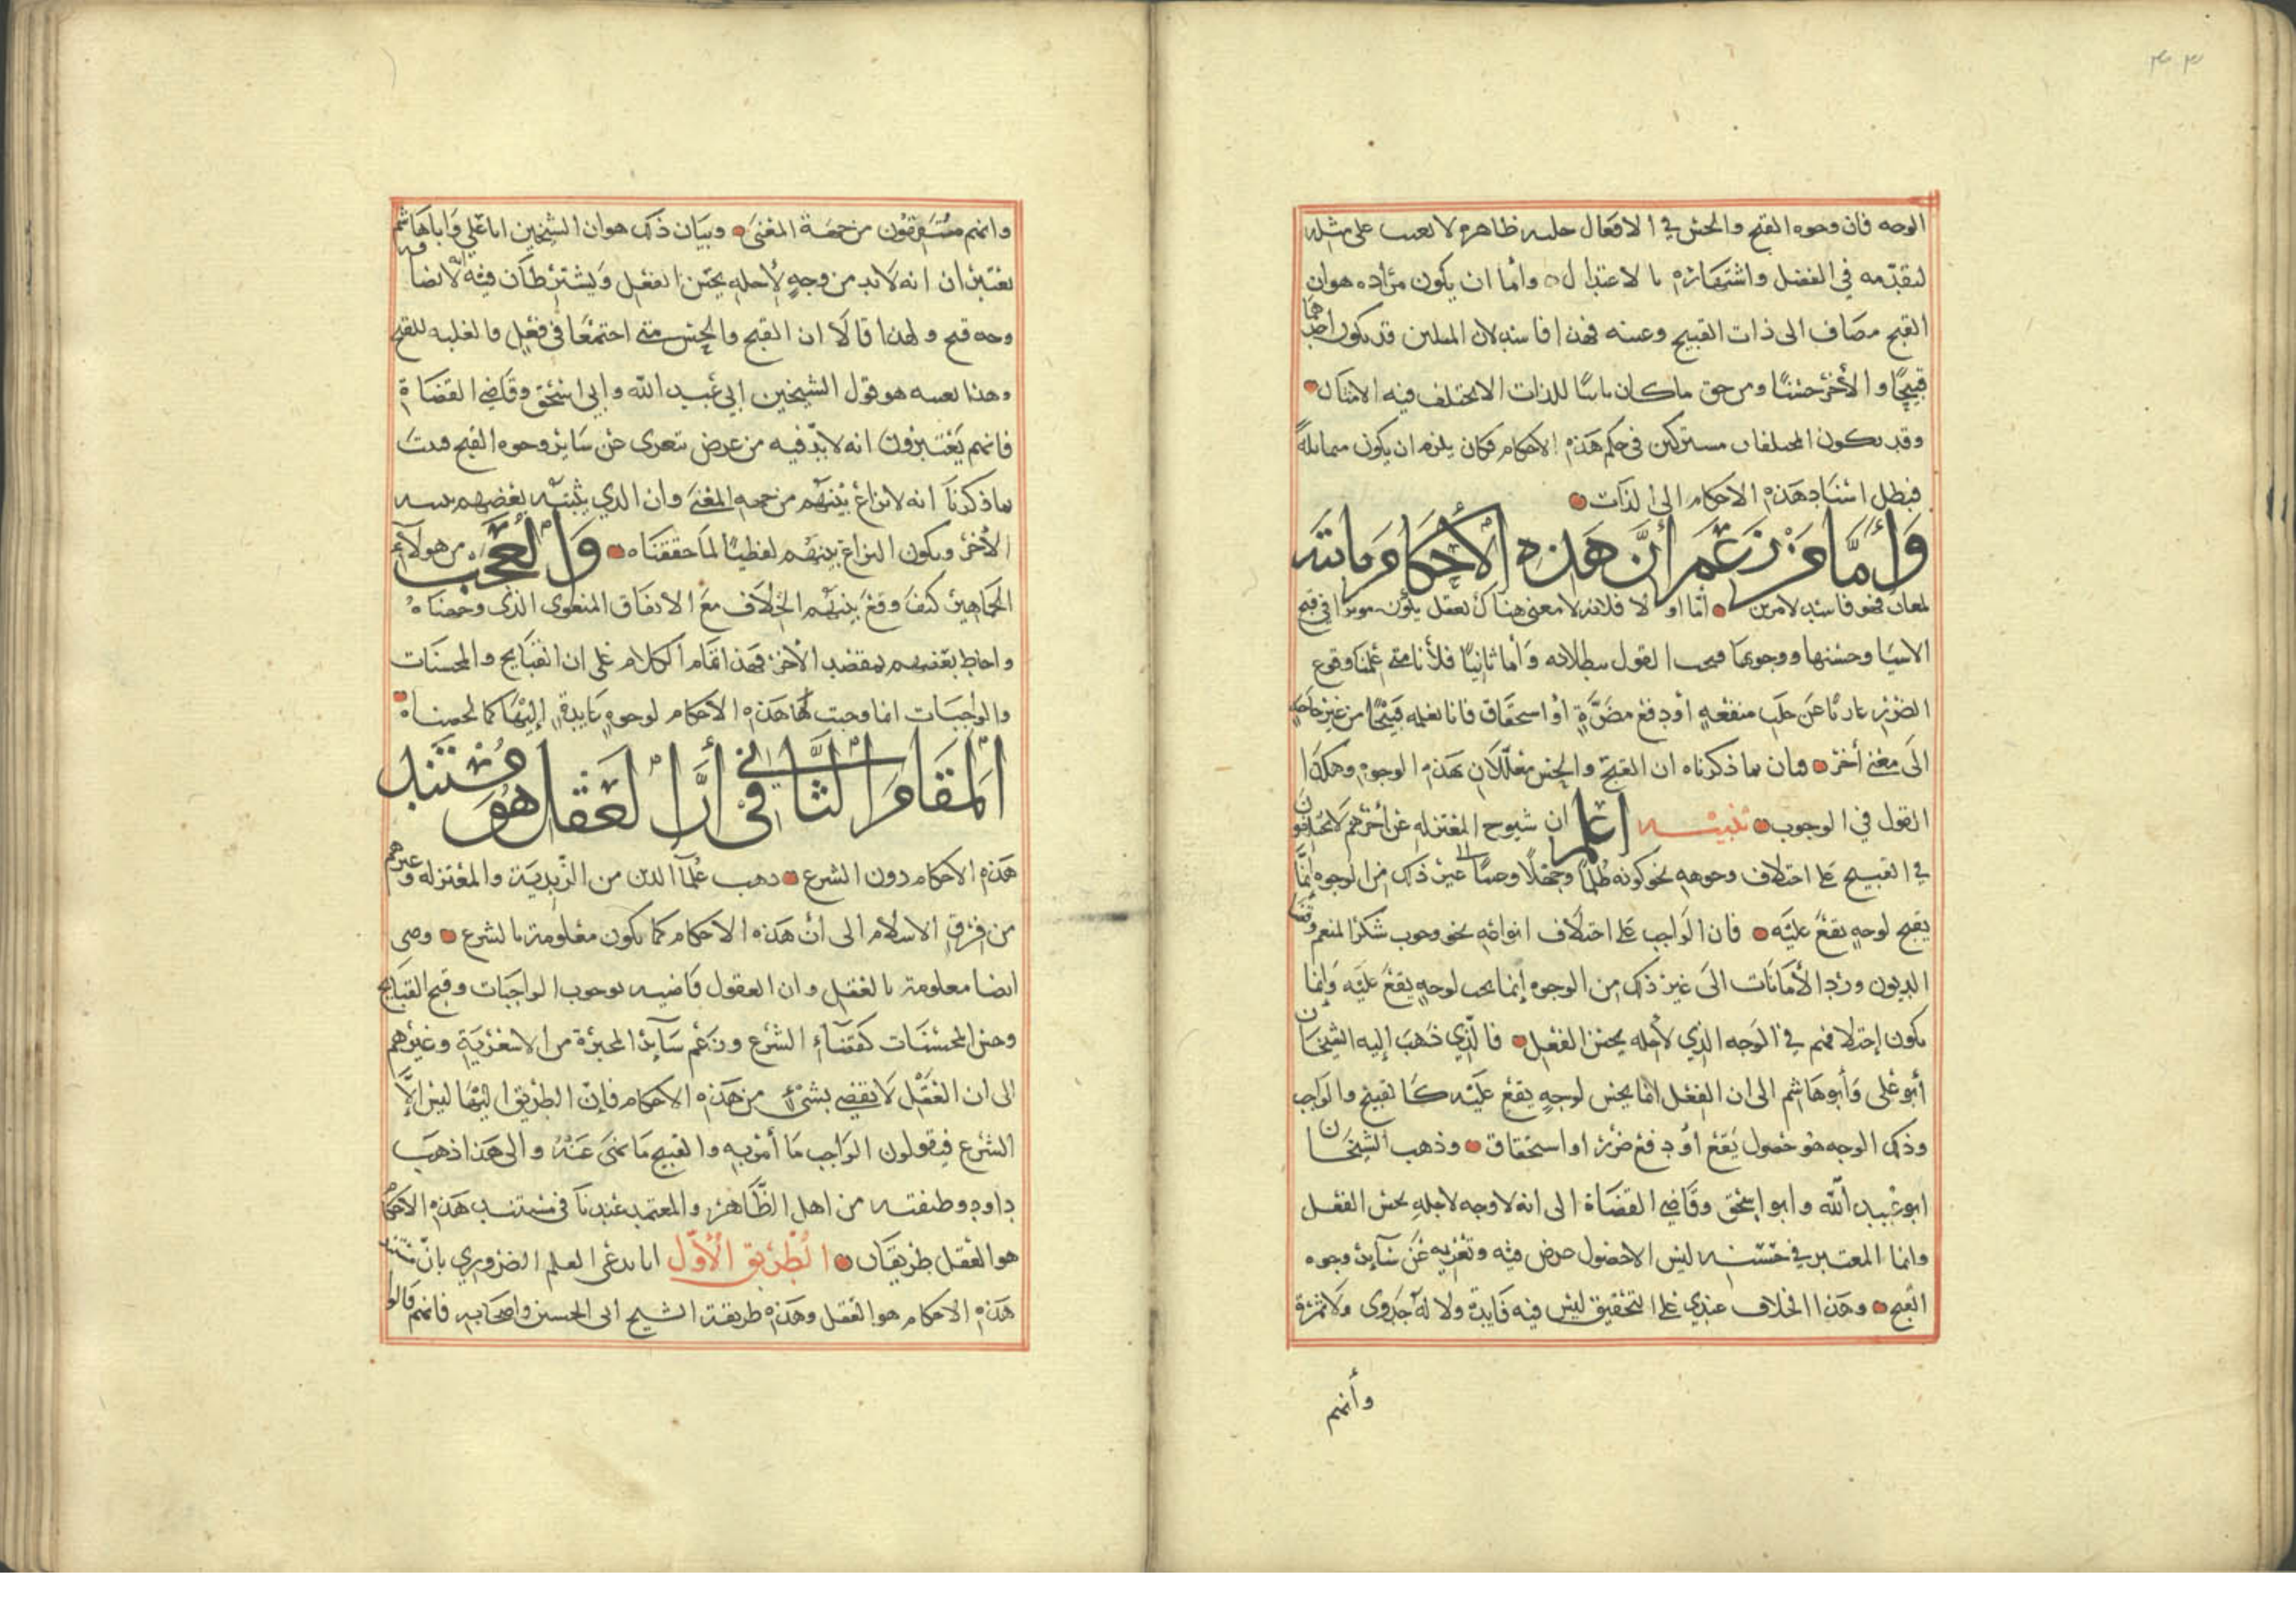 الوجه فان وجوه القبح والحسن في الافعال جلية ظاهرة لا تعب على مثله
لتقدمه في الفضل واشتهاره بالاعتزال وأما ان يكون مراده هو ان
القبح مضاف الى ذات القبيح وعينه فهذا فاسد لان المثلين قد يكون احدهما
قبيحًا والأخر حسنًا ومن حق ما كان ثابتًا للذات الا يختلف فيه الامثال
وقد يكون المختلفان مشتركين في حكم هذه الاحكام فكان يلزم ان يكون متماثلة
فبطل اسناد هذه الاحكام الى الذات
وَأَمَّا مَنْ زَعَمَ أَنَّ هَذِهِ الأَحْكَامَ ثابتة
لمعان فهو فاسد لامرين أما اولا فلانه لا معنى هناك يعقل يكون موثرا في قبح
الاشيا وحسنها ووجوبها فيجب القول ببطلانه وأما ثانيًا فلأنا متى علمنا وقوع
الضرر عاريًا عن جلب منفعة أو دفع مضرّة أو استحقاق فانا نعلمه قبيحًا من غير حاجة
الى معنى أخر فبان بما ذكرناه ان القبح والحسن معلّلان بهذه الوجوه وهكذا
القول في الوجوب تنبيه اعلم ان شيوخ المعتزلة عن أخرهم لا يختلفون
في القبيح على اختلاف وجوهه نحو كونه ظلمًا وجهلًا وعبثًا الى غير ذلك من الوجوه إنما
يقبح لوجه يقع عليه فان الواجب على اختلاف انواعه نحو وجوب شكر المنعم وقضا
الديون ورد الأمانات الى غير ذلك من الوجوه إنما يجب لوجه يقع عليه وإنما
يكون إختلافهم في الوجه الذي لأجله يحسن الفعل فالذي ذهب إليه الشيخان
أبو علي وأبو هاشم الى ان الفعل انما يحسن لوجه يقع عليه كالقبيح والواجب
وذلك الوجه هو حصول نفع أو دفع ضرر او استحقاق وذهب الشيخان
ابو عبيد الله وابو إسحق وقاضي القضاة الى انه لا وجه لاجله يحسن الفعل
وانما المعتبر في حسنه ليس الا حصول غرض فيه وتعريه عن سآئر وجوه
القبح وهذا الخلاف عندي على التحقيق ليس فيه فايدة ولا له جدوى ولا ثمرة
وأنهم
وانهم متفقون من جهة المعنى وبيان ذلك هو ان الشيخين ابا علي وابا هاشم
يعتبران انه لا بد من وجه لأجله يحسن الفعل ويشترطان فيه أن لا يضامه
وجه قبح ولهذا قالا ان القبح والحسن متى اجتمعا في فعل فالغلبة للقبح
وهذا بعينه هو قول الشيخين ابي عبيد الله وابي اسحق وقاضي القضاة
فانهم يعتبرون انه لا بدّ فيه من غرض تعرى عن ساير وجوه القبح فثبت
بما ذكرنا انه لا نزاع بينهم من جهة المعنى وان الذي يثبته بعضهم يثبته
الأخر ويكون النزاع بينهم لفظيًا لما حققناه وَالعَجَب من هولآء
الجماهير كيف وقع بينهم الخلاف مع الاتفاق المعنوي الذي وضحناه
واحاط بعضهم بمقصد الأخر فهذا تمام الكلام على ان القبايح والمحسنات
والواجبات انما وجبت لها هذه الاحكام لوجوه عايدة إليها كما لخصناه
المَقَام الثَّاني في أَنَّ العَقْل هُوَ مُسْتَنَد
هذه الاحكام دون الشرع ذهب علمآ الدين من الزّيدية والمعتزلة وغيرهم
من فرق الاسلام الى أن هذه الاحكام كما يكون معلومة بالشرع وهي
ايضا معلومة بالعقل وان العقول قاضية بوجوب الواجبات وقبح القبايح
وحسن المحسنات كقضآء الشرع وزعم سآير المجبرة من الاشعرية وغيرهم
الى ان العقل لا يقضي بشيء من هذه الاحكام فإن الطريق اليها ليس إلّا
الشرع فيقولون الواجب ما أمر به والقبيح ما نهى عنه والى هذا ذهب
داود وطبقته من اهل الظاهر والمعتمد عندنا في مستند هذه الاحكام
هو العقل طريقان الطريق الأوّل انا ندعي العلم الضروري بانّ مستند
هذه الاحكام هو العقل وهذه طريقة الشيخ ابي الحسين واصحابه فانهم قالوا